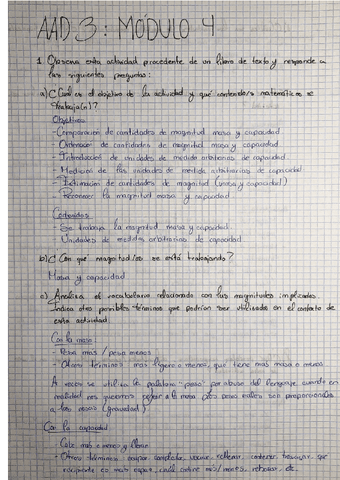 AAD 3: MÓDULO 4
1. Observa esta actividad procedente de un libro de texto y responde a
las siguientes preguntas:
a) ¿Cuál es el objetivo de la actividad y qué contenido/s matemáticos se
trabaja(n)?
Objetivos
- Comparación de cantidades de magnitud masa y capacidad
- Ordenación de cantidades de magnitud masa y capacidad.
- Introducción de unidades de medida arbitrarias de capacidad.
- Medición de las unidades de medida arbitrarias de capacidad
- Estimación de cantidades de magnitud (masa y capacidad)
- Reconocer la magnitud masa y capacidad.
Contenidos
- Se trabaja la magnitud masa y capacidad.
- Unidades de medidas arbitrarias de capacidad
b) ¿Con qué magnitud/es se está trabajando?
Masa y capacidad
c) Analiza el vocabulario relacionado con las magnitudes implicadas.
Indica otro posibles términos que podrían ser utilizados en el contexto de
esta actividad.
Con la masa
- Pesa más / pesa menos
- Otros términos más ligero o menos, que tiene más masa o menos
A veces se utiliza la palabra "peso" por abuso del lenguaje cuando en
realidad nos queremos referir a la masa pero son proporcionales
a las masas (gravedad)
Con la capacidad
Cabe más o menos y llenar
- Otros términos ocupar, completar, vaciar, rellenar, contener, trasvasar, que
recipiente es más capaz, cuál contiene más/menos, rebosar, etc.